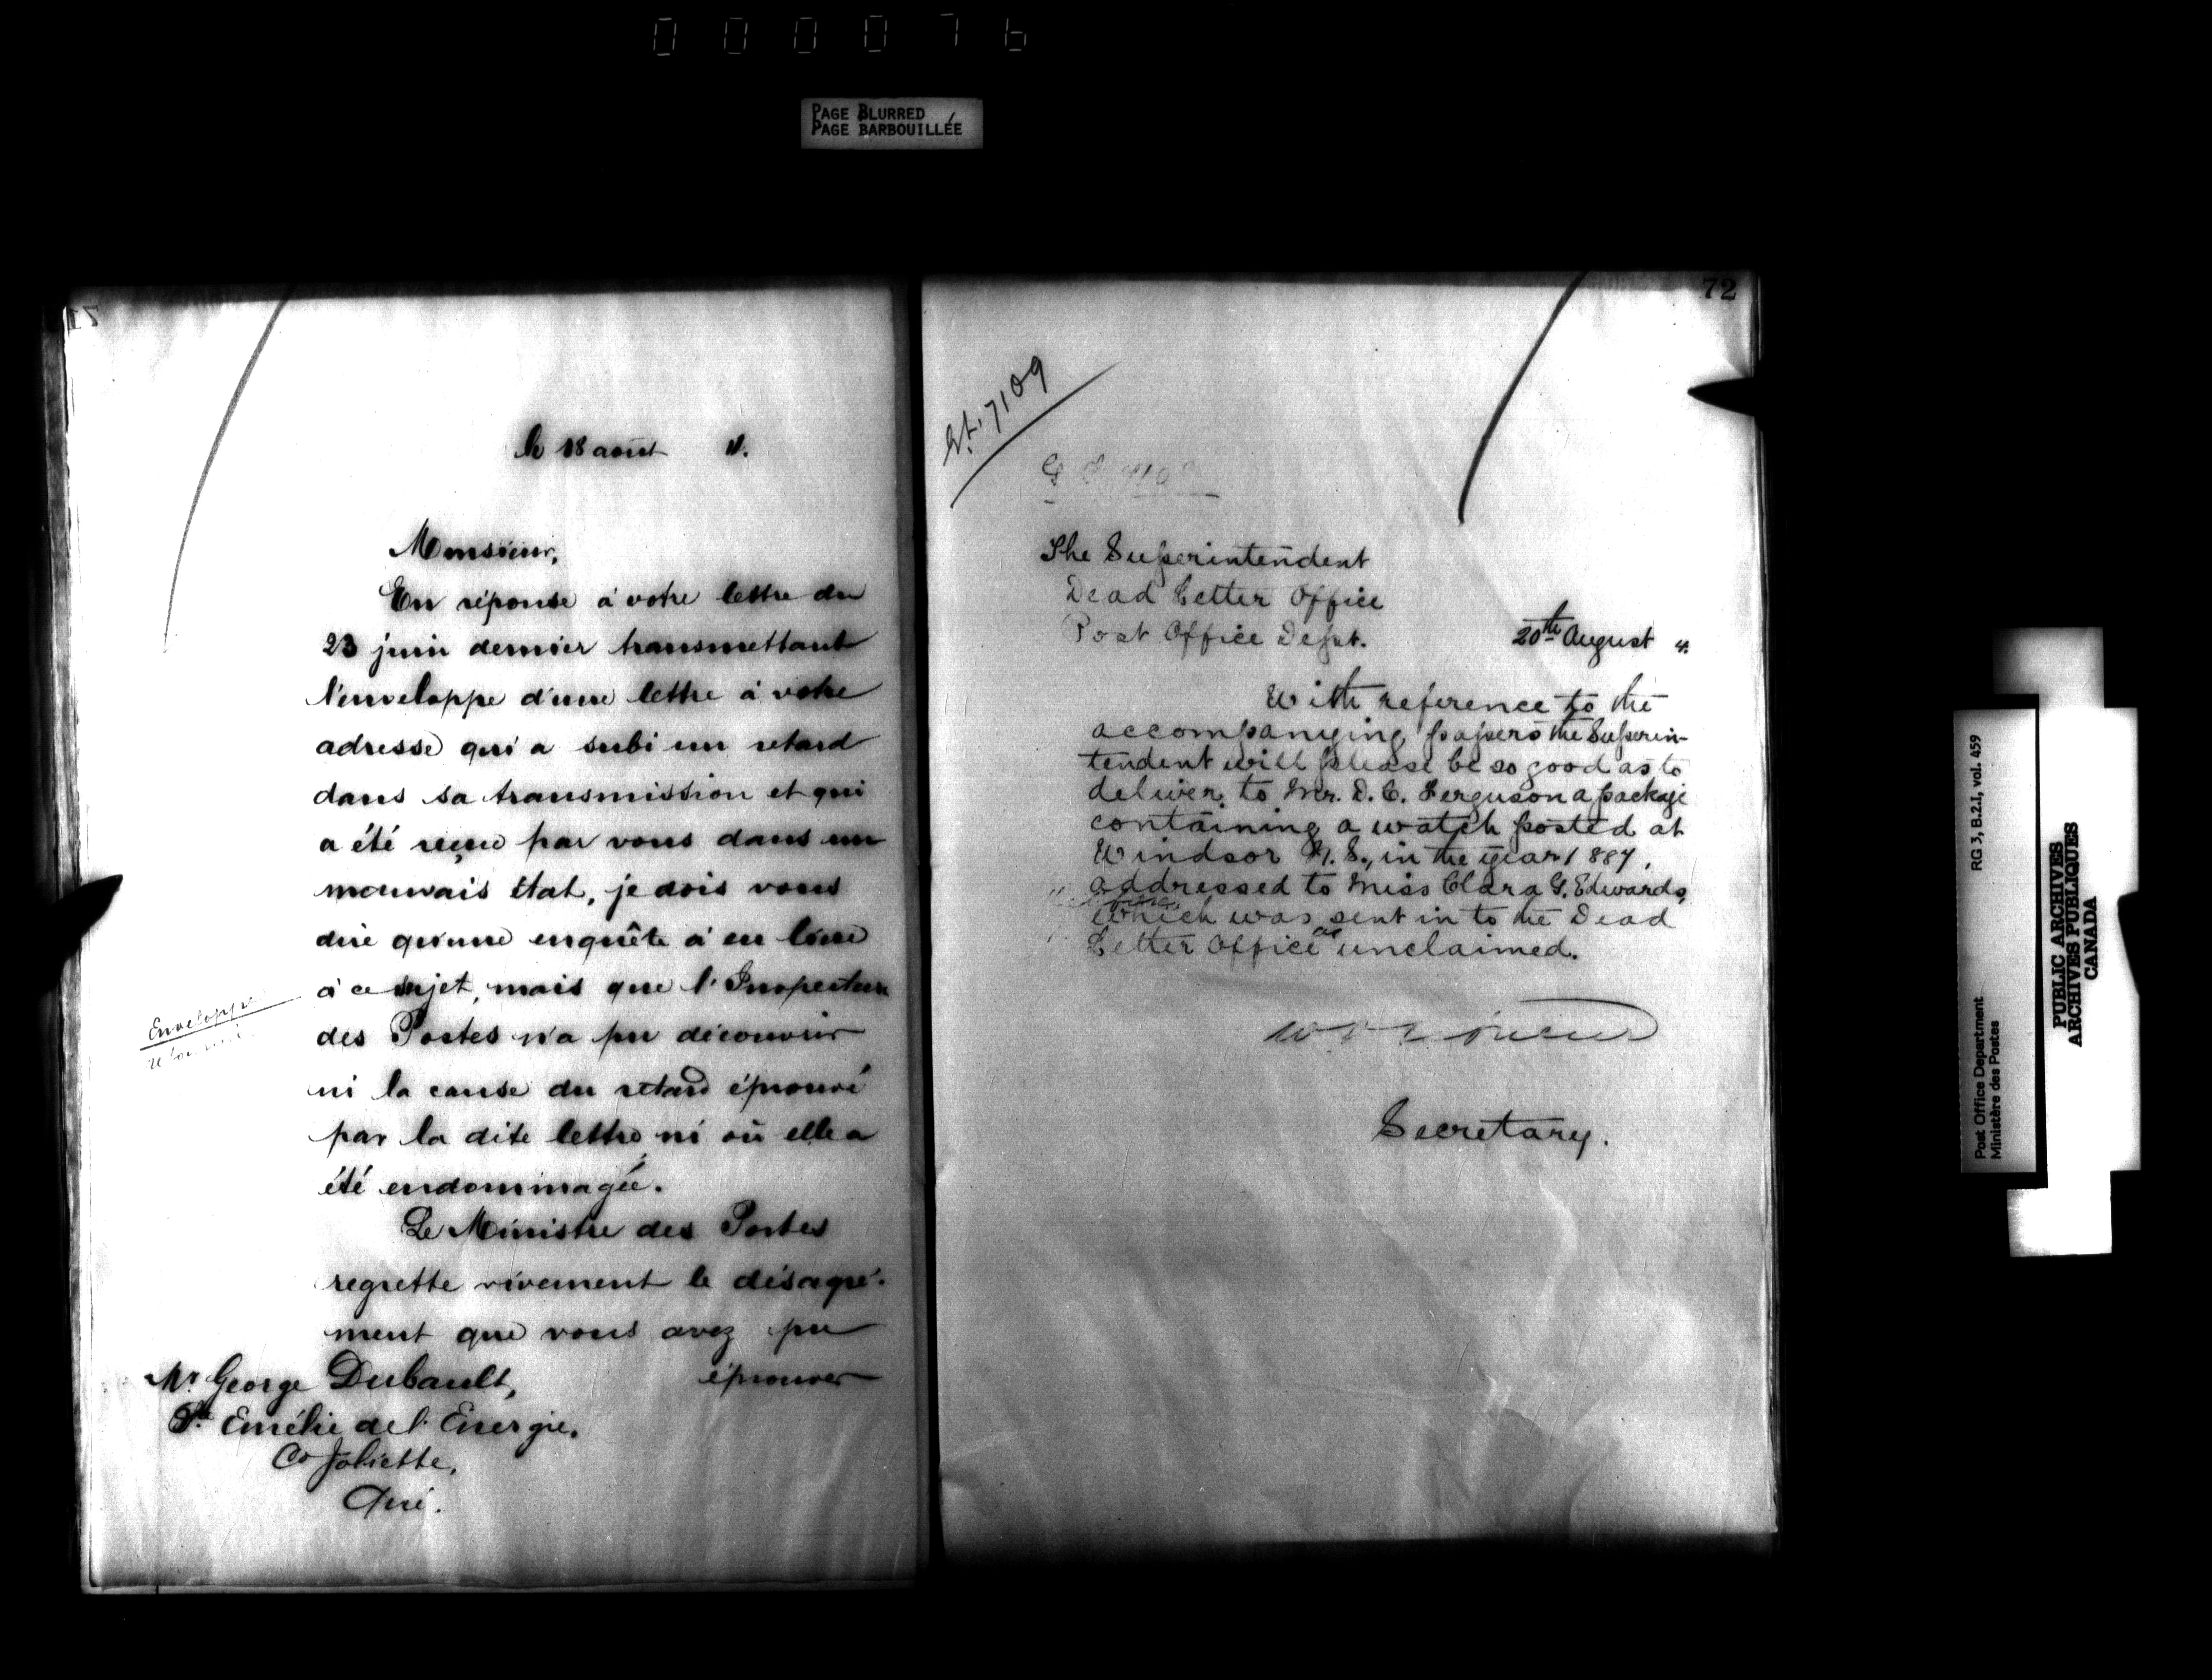 000076
PAGE BLURRED
PAGE BARBOUILLÉE
le 18 août
Monsieur,
En réponse à votre lettre du
23 juin dernier transmettant
l'enveloppe d'une lettre à votre
adresse qui a subi un retard
dans sa transmission et qui
a été reçue par vous dans un
mauvais état, je dois vous
dire qu'une enquête a eu lieu
à ce sujet, mais que l'Inspecteur
des Postes n'a pu découvrir
ni la cause du retard éprouvé
par la dite lettre ni où elle a
été endommagée.
Le Ministre des Postes
regrette vivement le désagré-
ment que vous avez pu
éprouver
Enveloppe
Mr. George Dubault,
Ste Emélie de l'Energie,
Co Joliette,
Qué.
72
7109
The Superintendent
Dead Letter Office
Post Office Dept.
20th August 4.
With reference to the
accompanying papers the Superin-
tendent will please be so good as to
deliver to Mr. D. C. Ferguson a package
containing a watch posted at
Windsor N.S., in the year 1887,
addressed to Miss Clara G. Edwards,
which was sent in to the Dead
Letter Office as unclaimed.
Secretary.
Post Office Department RG 3, B.2.I, vol. 459
Ministère des Postes
PUBLIC ARCHIVES
ARCHIVES PUBLIQUES
CANADA